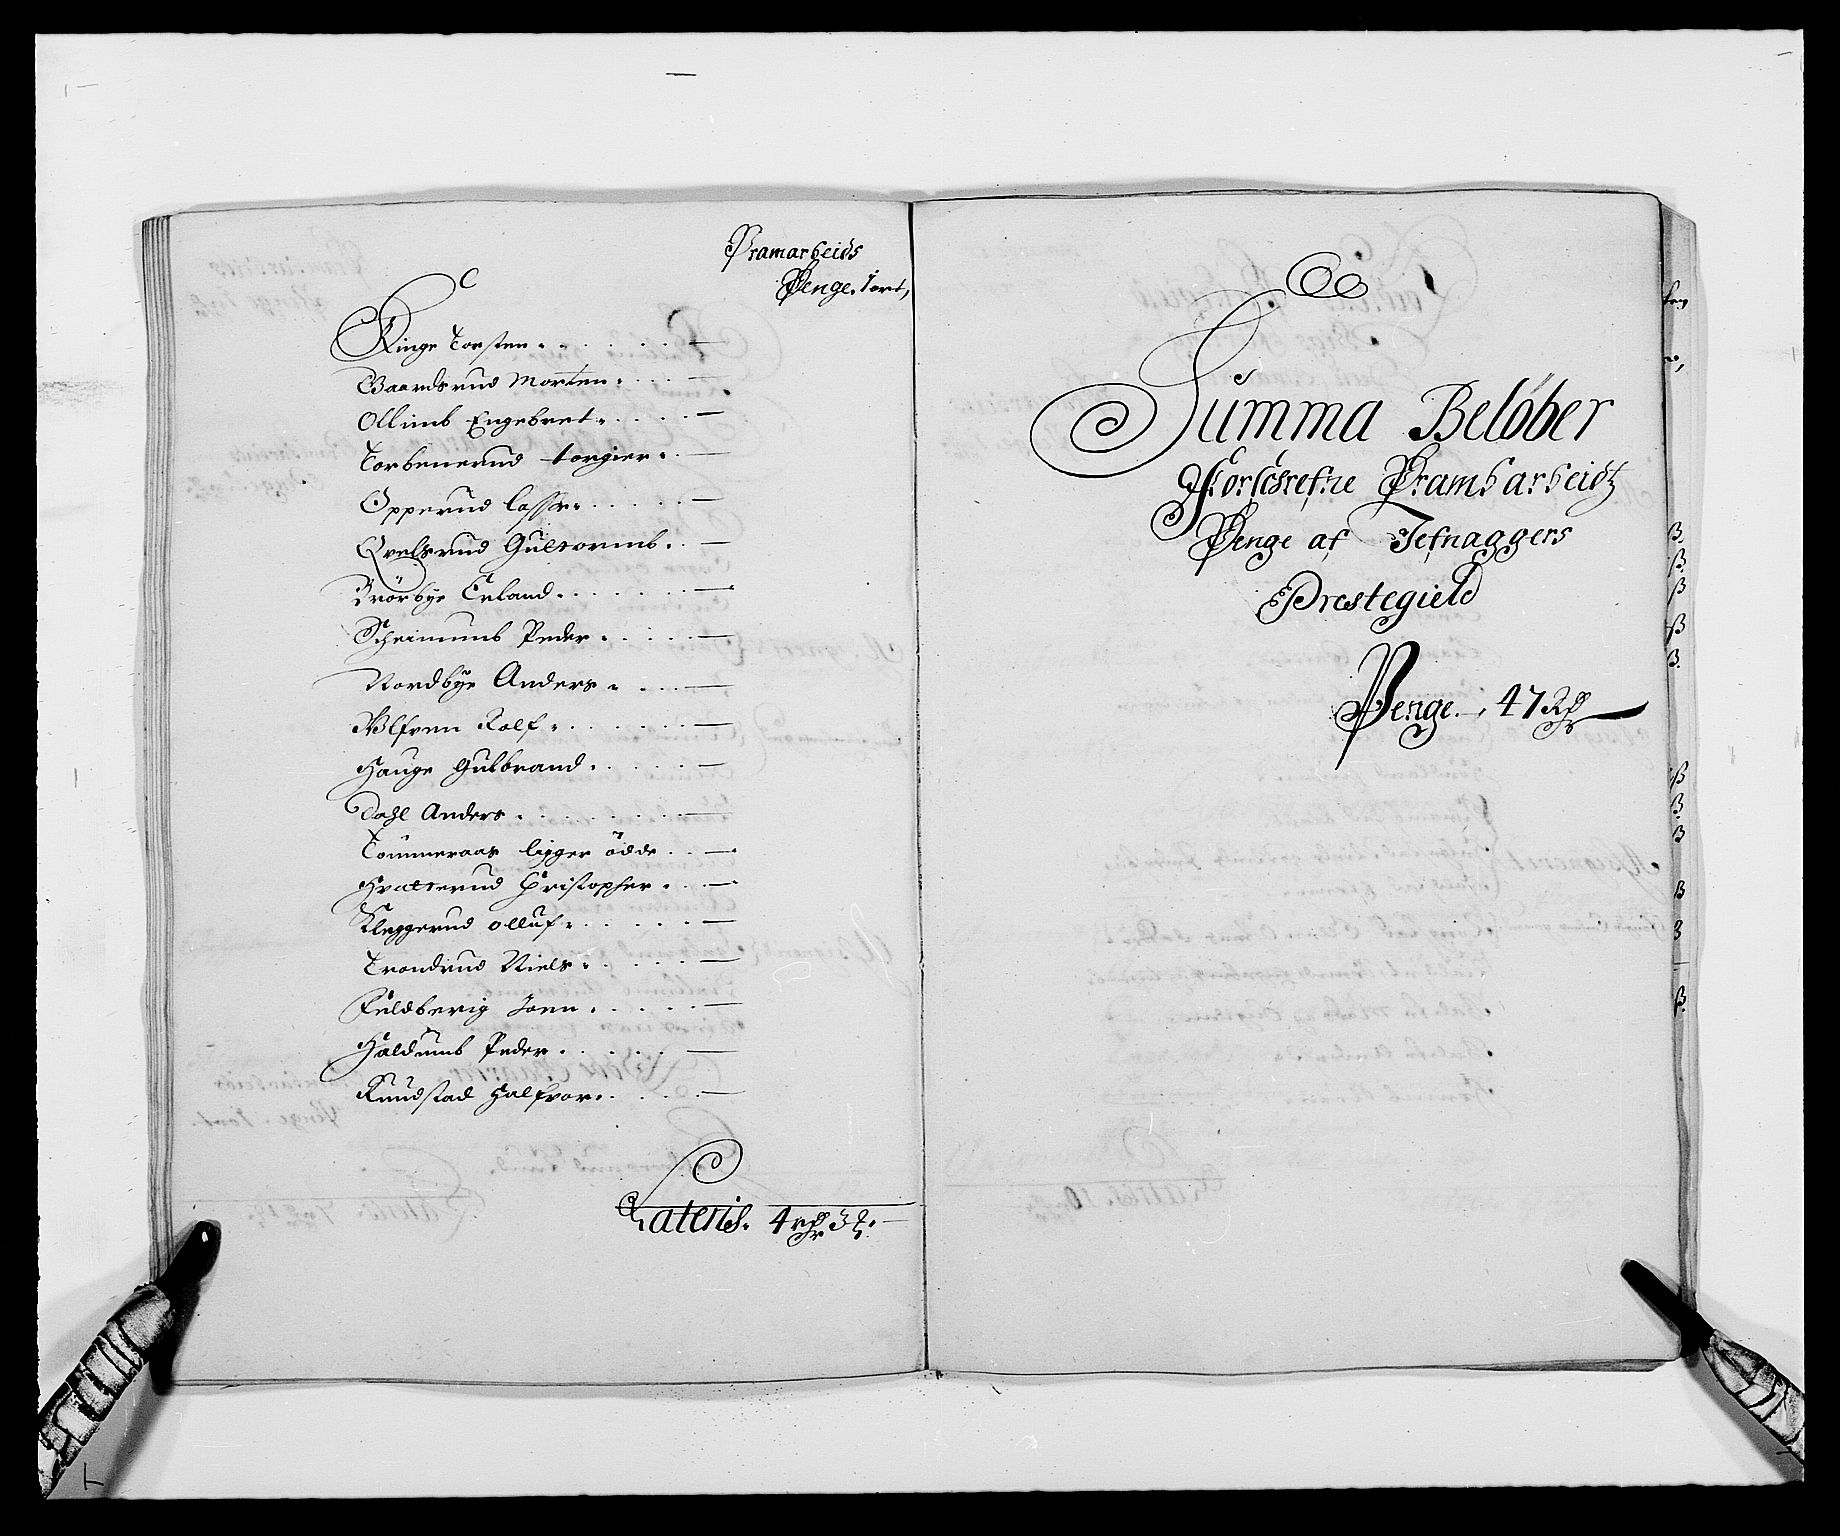 Pramarbeids
Penge. 1 ort,
Ringe Torsten . . . . . . . —
Baardsrud Morten . . . . —
Ollimb Engebret . . . . —
Torbenerud torgier . . —
Opperud Lasse . . . . . —
Qvelsrud Gultormb . . —
Brörbye Erland . . . . . . —
Scheimund Peder . . . . . —
Nordbye Anders . . . . —
Ulfven Rolf . . . . . . . —
Hauge Gulbrand . . . . . —
Dahl Anders . . . . . . . . —
Tommeraas ligger ödde . . —
Hvatterud Christopher . . . —
Kleggerud olluf . . . . . . —
Trondrud Niels . . . . . —
Feldberig Joen . . . . . —
Haldumb Peder . . . . . —
Ruudstad Halfvor . . . . . —
Lateris. 4 Rdr 3 ?. —
Summa Belöber
Forschrefne Prambarbeidtz
Penge af Jefnaggers
Prestegield
Penge. . 47 Rdr —